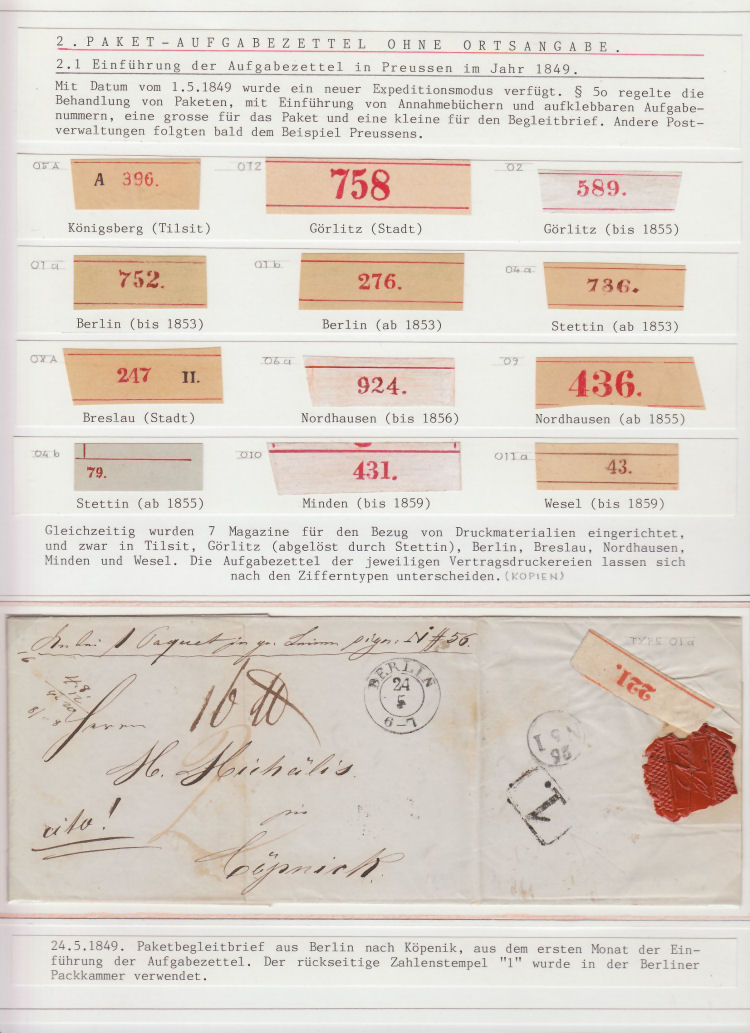 2. PAKET-AUFGABEZETTEL OHNE ORTSANGABE.
2.1 Einführung der Aufgabezettel in Preussen im Jahr 1849.
Mit Datum vom 1.5.1849 wurde ein neuer Expeditionsmodus verfügt. § 5o regelte die
Behandlung von Paketen, mit Einführung von Annahmebüchern und aufklebbaren Aufgabe-
nummern, eine grosse für das Paket und eine kleine für den Begleitbrief. Andere Post-
verwaltungen folgten bald dem Beispiel Preussens.
05A A 396. 012 758 02 589.
Königsberg (Tilsit) Görlitz (Stadt) Görlitz (bis 1855)
01a 752. 01b 276. 04a 736.
Berlin (bis 1853) Berlin (ab 1853) Stettin (ab 1853)
08A 247 II. 06a 924. 09 436.
Breslau (Stadt) Nordhausen (bis 1856) Nordhausen (ab 1855)
04b 79. 010 431. 011a 43.
Stettin (ab 1855) Minden (bis 1859) Wesel (bis 1859)
Gleichzeitig wurden 7 Magazine für den Bezug von Druckmaterialien eingerichtet,
und zwar in Tilsit, Görlitz (abgelöst durch Stettin), Berlin, Breslau, Nordhausen,
Minden und Wesel. Die Aufgabezettel der jeweiligen Vertragsdruckereien lassen sich
nach den Zifferntypen unterscheiden. (KOPIEN)
1 Paquet in gr. sign: 56.
TYPE 01a
BERLIN
24
5
6-7
221.
26
5 1
1.
Herrn
H. Michälis.
cito!
Cöpnick.
24.5.1849. Paketbegleitbrief aus Berlin nach Köpenik, aus dem ersten Monat der Ein-
führung der Aufgabezettel. Der rückseitige Zahlenstempel "1" wurde in der Berliner
Packkammer verwendet.